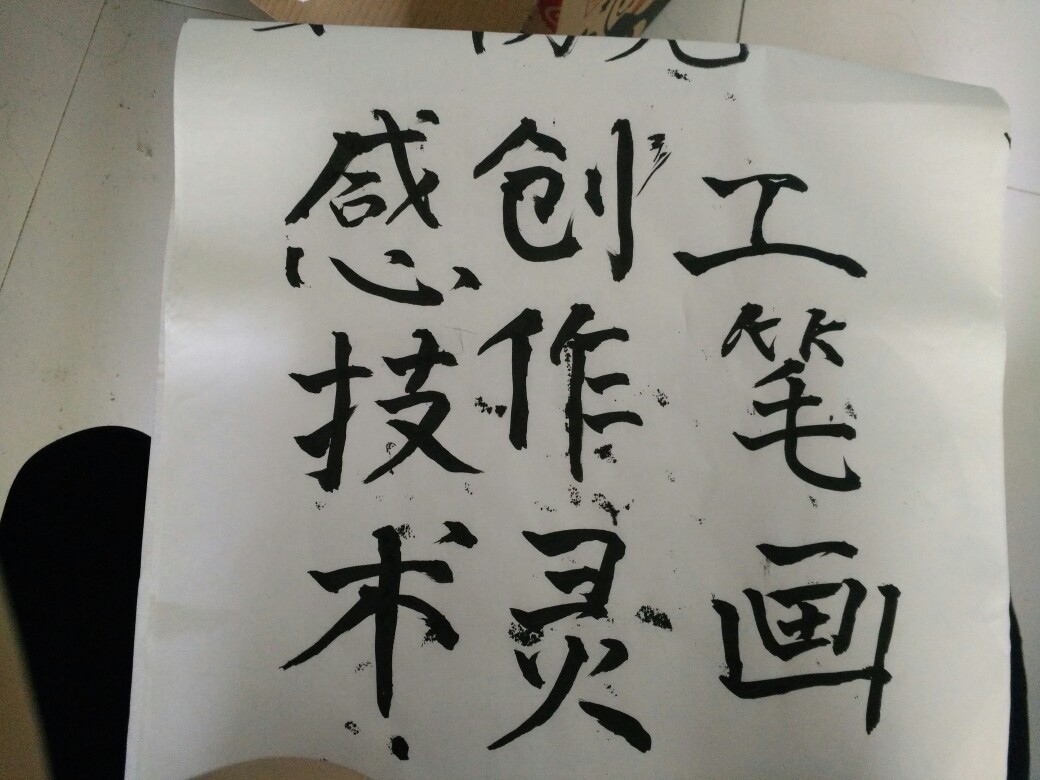 工笔画
创作灵
感技术